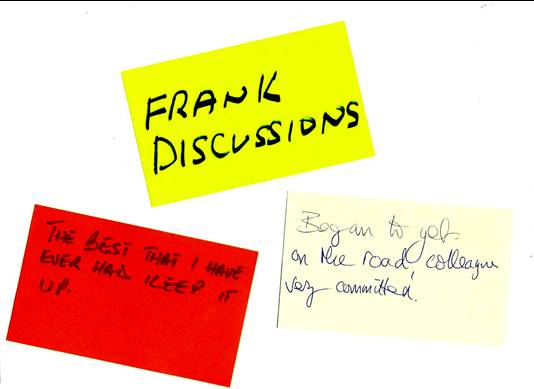 FRANK
DISCUSSIONS
THE BEST THAT I HAVE
EVER HAD KEEP IT
UP.
Began to get
on the road' colleagues
very committed.